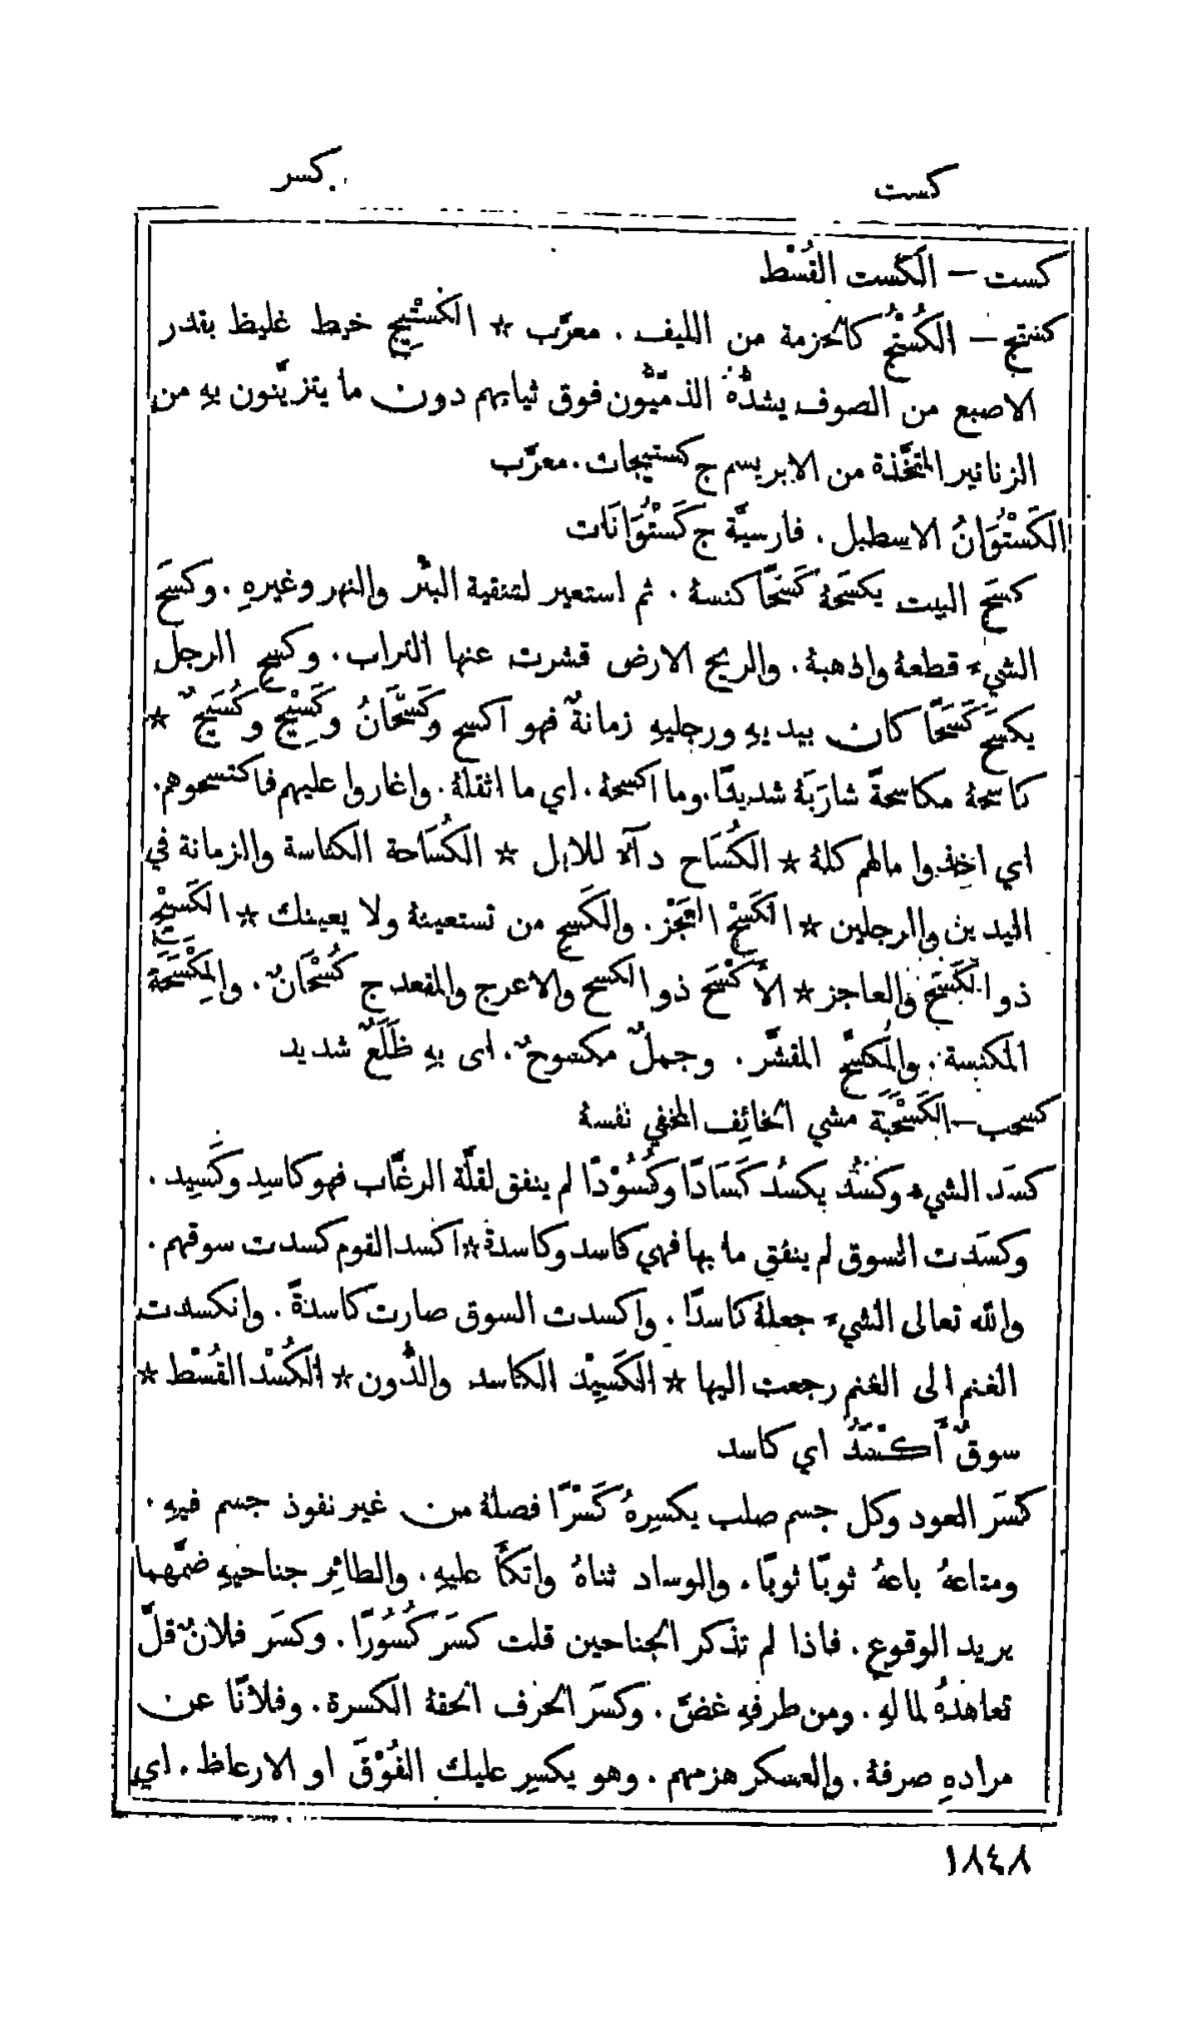 كست
كسر
كست – الكُست القُسْط
كستج – الكُسْتُج كالحزمة من الليف . معرَّب * الكُسْتِيج خيط غليظ بقدر
الاصبع من الصوف يشدُّهُ الذمّيُّون فوق ثيابهم دون ما يتزيَّنون بهِ من
الزنانير المتخَّذة من الابريسم ج كستيجات . معرَّب
الكَسْتُوَانُ الاسطبل . فارسيَّة ج كَسْتُوَانَات
كسَح البيت يكسَحهُ كَسْحًا كنسهُ . ثم استعير لتنقية البئْر والنهر وغيرهِ . وكسَح
الشيءَ قطعهُ واذهبهُ . والريح الارض قشرت عنها التراب . وكسِح الرجل
يكسَح كَسَحًا كان بيديهِ ورجليهِ زمانةٌ فهو اكسح وكَسْحَانُ وكَسِيْحٌ وكُسَيحٌ *
كاسحهُ مكاسحةً شارَبَهُ شديدًا . وما اكسحهُ . اي ما اثقلهُ . واغاروا عليهم فاكتسحوهم .
اي اخذوا مالهم كلهُ * الكُسَاح دآء للابل * الكُسَاحة الكناسة والزمانة في
اليدين والرجلين * الكَسْح العَجْز . والكَسِح من تستعينهُ ولا يعينك * الكَسِيْح
ذو الكَسَح والعاجز * الأَكْسَح ذو الكسح والاعرج والمقعد ج كُسْحَانٌ . والمِكْسَحَة
المكنسة . والمُكَسَّح المقشَّر . وجملٌ مكسوحٌ . اى بهِ ظَلَعٌ شديد
كسحب – الكَسْحَبَة مشي الخائِف المخفي نفسهُ
كسَد الشيءُ وكسُد يكسُد كَسَادًا وكُسُوْدًا لم ينفق لقلَّة الرغَّاب فهو كاسِد وكَسِيد .
وكسَدت السوق لم ينفق ما بها فهي كاسد وكاسدة * اكسد القوم كسدت سوقهم .
والله تعالى الشيءَ جعلهُ كاسدًا . واكسدت السوق صارت كاسدةً . وانكسدت
الغنم الى الغنم رجعت اليها * الكَسِيْد الكاسد والدُّون * الكُسْد القُسْط *
سوقٌ أَكْسَدُ اي كاسد
كسَر العود وكل جسم صلب يكسِرهُ كَسْرًا فصلهُ من غير نفوذ جسم فيهِ .
ومتاعهُ باعهُ ثوبًا ثوبًا . والوساد ثناهُ واتكأَ عليهِ . والطائِر جناحيهِ ضمَّهما
يريد الوقوع . فاذا لم تذكر الجناحين قلت كسَرَ كُسُورًا . وكسَر فلانٌ قلَّ
تعاهدهُ لمالهِ . ومن طرفهِ غضَّ . وكسَرَ الحرف الحقهُ الكسرة . وفلانًا عن
مرادهِ صرفهُ . والعسكر هزمهم . وهو يكسِر عليك الفُوْقَ او الارعاظ . اي
١٨٤٨